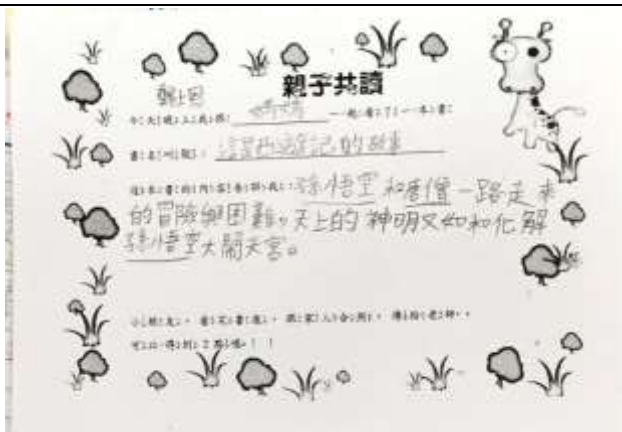 親子共讀
今天晚上我跟 媽媽 一起看了一本書
書名叫做:這是西遊記的故事
這本書的內容告訴我:孫悟空和唐僧一路走來
的冒險與困難。天上的神明又如和化解
孫悟空大鬧天宮。
小朋友,看完書後,跟家人合照,傳給老師,
可以得到2點哦!!